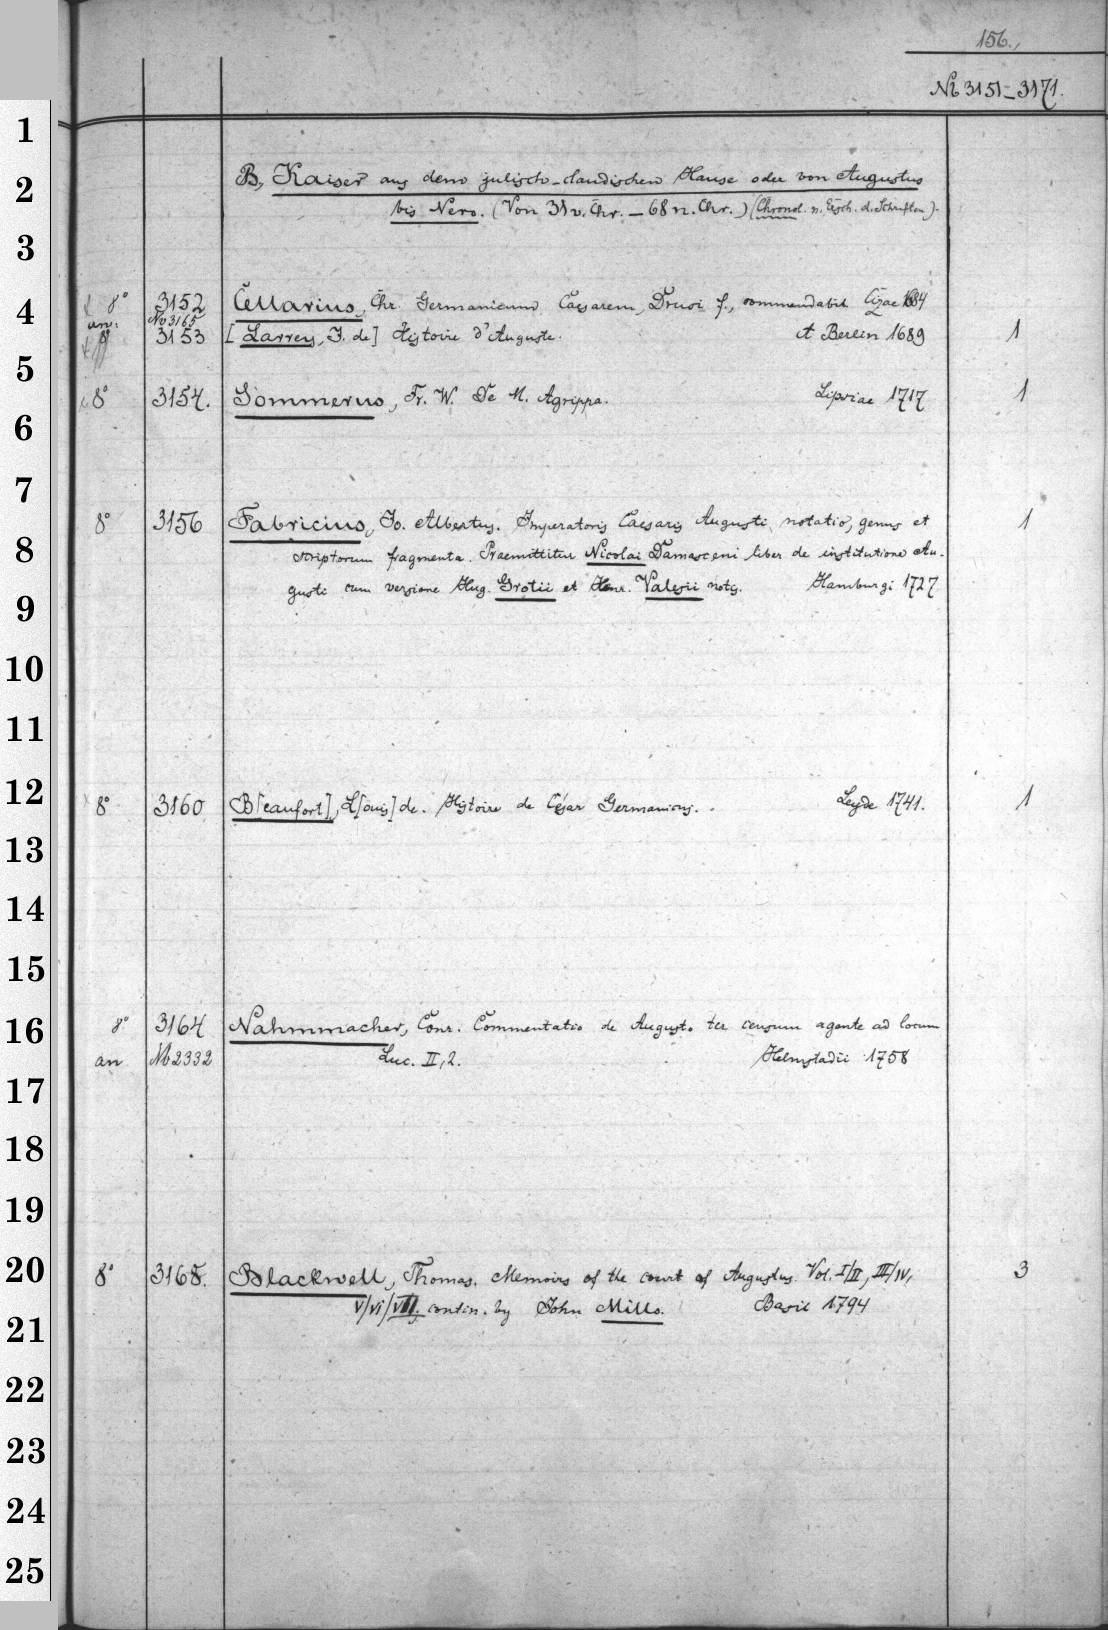 156.
№ 3151–3171.
B, Kaiser aus dem julisch-claudischen Hause oder von Augustus
bis Nero. (Von 31 v. Chr. – 68 n. Chr.) (Chronol. n. Ersch. d. Schriften).
8° 3152 Cellarius, Chr. Germanicum Caesarem, Drusi f., commendabit Cizae 1684
an: No 3165
3153 [Larrey, I. de] Histoire d'Auguste. A Berlin 1689 1
8° 3154. Sommerus, Fr. W. De M. Agrippa. Lipsiae 1717 1
8° 3156 Fabricius, Jo. Albertus. Imperatoris Caesaris Augusti notatio, genus et 1
scriptorum fragmenta. Praemittitur Nicolai Damasceni liber de institutione Au-
gusti cum versione Hug. Grotii et Henr. Valesii notis. Hamburgi 1727.
8° 3160 B[eaufort], L[ouis] de. Histoire de César Germanicus. Leyde 1741. 1
8° 3164 Nahmmacher, Conr. Commentatio de Augusto ter censum agente ad locum
an № 2332 Luc. II, 2. Helmstadii 1758
8° 3168. Blackwell, Thomas. Memoirs of the court of Augustus. Vol. I/II, III/IV, 3
V/VI/VII. contin. by John Mills. Basil 1794
1
2
3
4
5
6
7
8
9
10
11
12
13
14
15
16
17
18
19
20
21
22
23
24
25